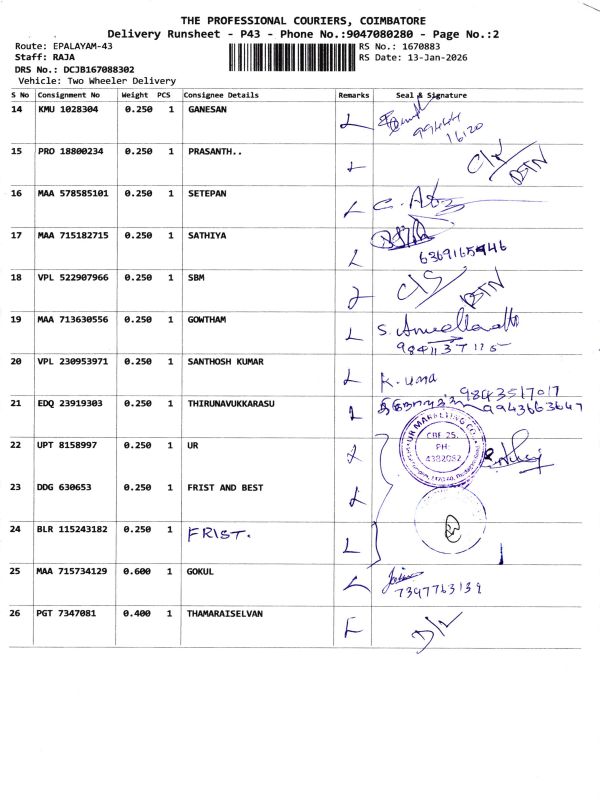 THE PROFESSIONAL COURIERS, COIMBATORE
Delivery Runsheet - P43 - Phone No.:9047080280 - Page No.:2
Route: EPALAYAM-43
RS No.: 1670883
Staff: RAJA
RS Date: 13-Jan-2026
DRS No.: DCJB167088302
Vehicle: Two Wheeler Delivery
S No Consignment No Weight PCS Consignee Details Remarks Seal & Signature
14 KMU 1028304 0.250 1 GANESAN L
99444
16120
15 PRO 18800234 0.250 1 PRASANTH.. L
16 MAA 578585101 0.250 1 SETEPAN L
17 MAA 715182715 0.250 1 SATHIYA L
6369165446
18 VPL 522907966 0.250 1 SBM L
19 MAA 713630556 0.250 1 GOWTHAM L
20 VPL 230953971 0.250 1 SANTHOSH KUMAR L K. Uma
9843517017
21 EDQ 23919303 0.250 1 THIRUNAVUKKARASU L
9943663647
22 UPT 8158997 0.250 1 UR L
UR MARKETING CO.
CBE-25.
PH:
4382082
23 DDG 630653 0.250 1 FRIST AND BEST L
24 BLR 115243182 0.250 1 FRIST. L
25 MAA 715734129 0.600 1 GOKUL L
7397763139
26 PGT 7347081 0.400 1 THAMARAISELVAN L
D/L